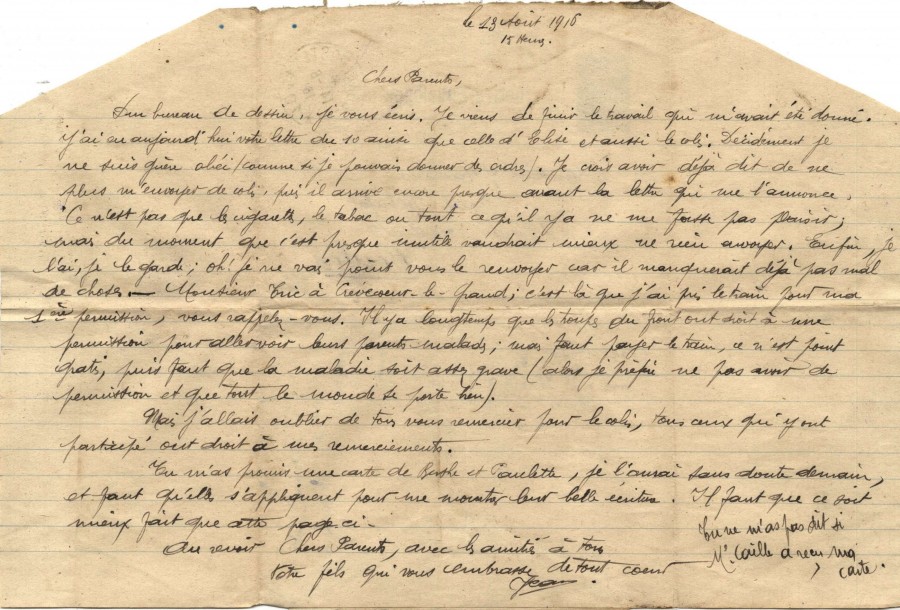 le 13 Août 1916
15 Heures.
Chers Parents,
D'un bureau de dessin, je vous écris. Je viens de finir le travail qui m'avait été donné.
J'ai eu aujourd'hui votre lettre du 10 ainsi que celle d'Elise et aussi le colis. Décidément je
ne suis guère obéi (comme si je pouvais donner des ordres). Je crois avoir déjà dit de ne
plus m'envoyer de colis, puis il arrive encore presque avant la lettre qui me l'annonce.
Ce n'est pas que les cigarettes, le tabac ou tout ce qu'il y a ne me fasse pas plaisir;
mais du moment que c'est presque inutile vaudrait mieux ne rien envoyer. Enfin, je
l'ai, je le garde; oh! je ne vais point vous le renvoyer car il manquerait déjà pas mal
de choses. — Monsieur à Crèvecoeur-le-Grand; c'est là que j'ai pris le train pour ma
1ère permission, vous rappelez-vous. Il y a longtemps que les troupes du front ont droit à une
permission pour aller voir leurs parents malades; mais faut payer le train, ce n'est point
gratis, puis faut que la maladie soit assez grave (alors je préfère ne pas avoir de
permission et que tout le monde se porte bien).
Mais j'allais oublier de tous vous remercier pour le colis, tous ceux qui y ont
participé ont droit à mes remerciements.
Tu m'as promis une carte de Berthe et Paulette, je l'aurai sans doute demain,
et faut qu'elles s'appliquent pour me montrer leur belle écriture. Il faut que ce soit
mieux fait que cette page ci-
Au revoir Chers Parents, avec les amitiés à tous
Votre fils qui vous embrasse de tout coeur
Jean
Tu ne m'as pas dit si
Mr Caille a reçu ma
carte.